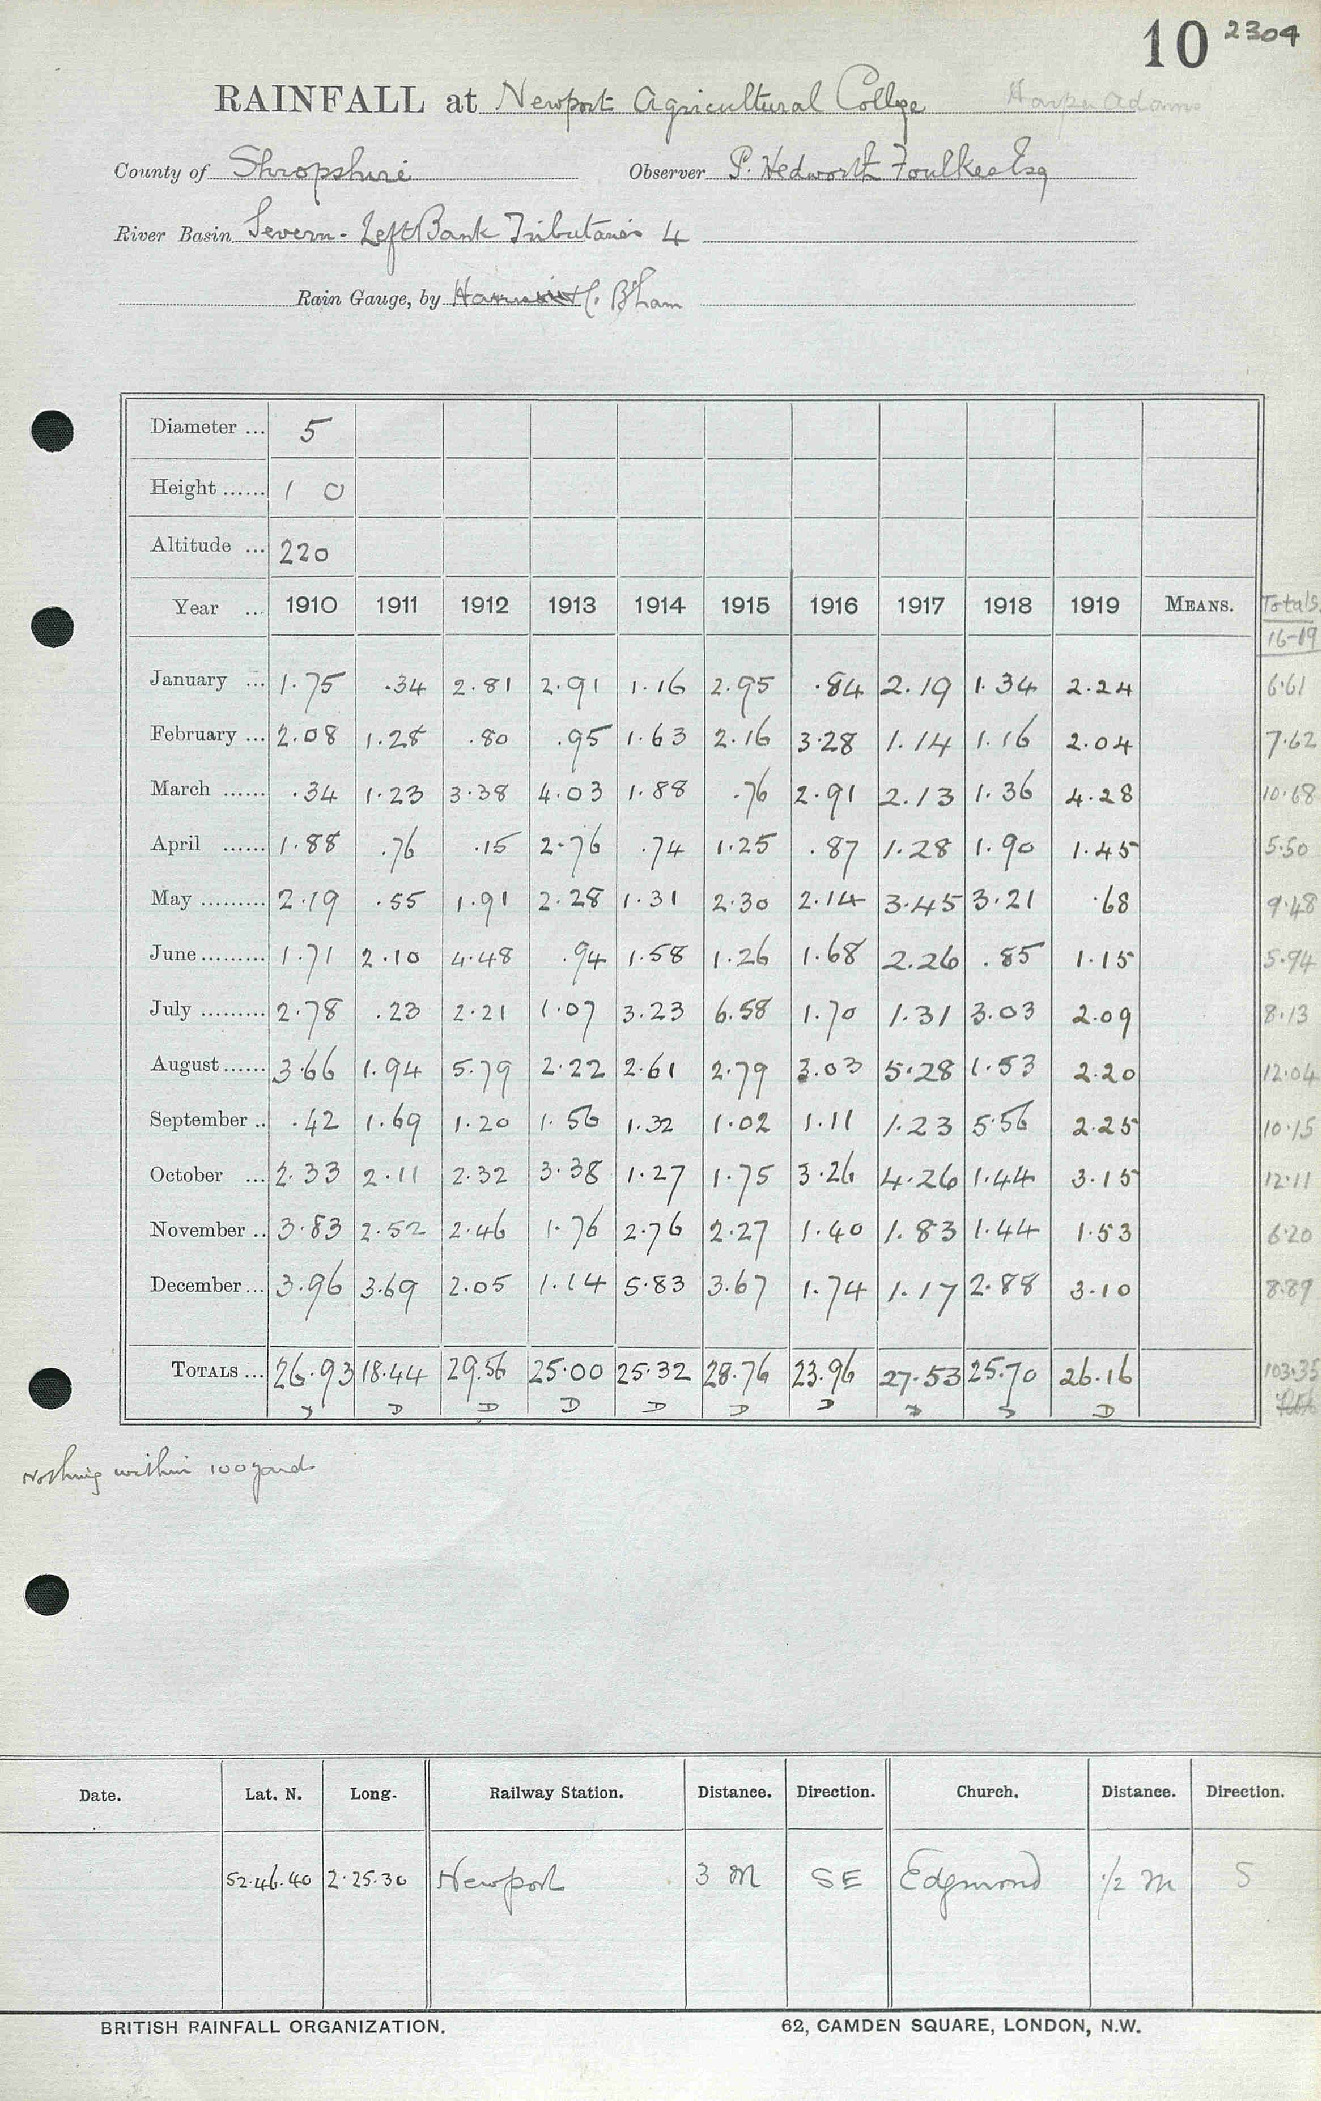 10 2304
RAINFALL at Newport Agricultural College Harper Adams
County of Shropshire Observer P. Hedworth Foulkes Esq
River Basin Severn - Left Bank Tributaries 4
Rain Gauge, by B'ham
Diameter ... 5
Height ...... 1 0
Altitude ... 220
Year ... 1910 1911 1912 1913 1914 1915 1916 1917 1918 1919 MEANS. Totals
16-19
January ... 1.75 .34 2.81 2.91 1.16 2.95 .84 2.19 1.34 2.24 6.61
February ... 2.08 1.28 .80 .95 1.63 2.16 3.28 1.14 1.16 2.04 7.62
March ...... .34 1.23 3.38 4.03 1.88 .76 2.91 2.13 1.36 4.28 10.68
April ...... 1.88 .76 .15 2.76 .74 1.25 .87 1.28 1.90 1.45 5.50
May ......... 2.19 .55 1.91 2.28 1.31 2.30 2.14 3.45 3.21 .68 9.48
June ......... 1.71 2.10 4.48 .94 1.58 1.26 1.68 2.26 .85 1.15 5.94
July ......... 2.78 .23 2.21 1.07 3.23 6.58 1.70 1.31 3.03 2.09 8.13
August ...... 3.66 1.94 5.79 2.22 2.61 2.79 3.03 5.28 1.53 2.20 12.04
September .. .42 1.69 1.20 1.56 1.32 1.02 1.11 1.23 5.56 2.25 10.15
October ... 2.33 2.11 2.32 3.38 1.27 1.75 3.26 4.26 1.44 3.15 12.11
November .. 3.83 2.52 2.46 1.76 2.76 2.27 1.40 1.83 1.44 1.53 6.20
December ... 3.96 3.69 2.05 1.14 5.83 3.67 1.74 1.17 2.88 3.10 8.89
TOTALS ... 26.93 18.44 29.56 25.00 25.32 28.76 23.96 27.53 25.70 26.16 103.35
D D D D D D D D D D
Nothing within 100 yards
Date. Lat. N. Long. Railway Station. Distance. Direction. Church. Distance. Direction.
52.46.40 2.25.30 Newport 3 M SE Edgmond 1/2 M S
BRITISH RAINFALL ORGANIZATION. 62, CAMDEN SQUARE, LONDON, N.W.